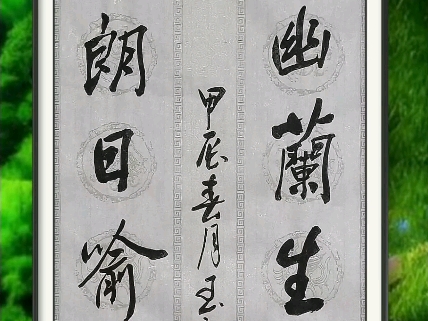 幽蘭生
朗日喻
甲辰春月玉